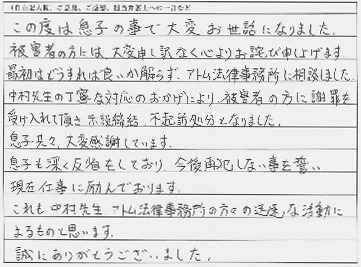 (自由記入欄)ご意見、ご感想、担当弁護士への一言など
この度は息子の事で大変お世話になりました。
被害者の方には、大変申し訳なく心よりお詫び申し上げます。
最初はどうすれば良いか解らず、アトム法律事務所に相談しました。
中村先生の丁寧な対応のおかげにより、被害者の方に謝罪を
受け入れて頂き示談締結、不起訴処分となりました。
息子共々、大変感謝しています。
息子も深く反省をしており、今後再犯しない事を誓い
現在仕事に励んでおります。
これも中村先生、アトム法律事務所の方々の迅速な活動に
よるものと思います。
誠にありがとうございました。